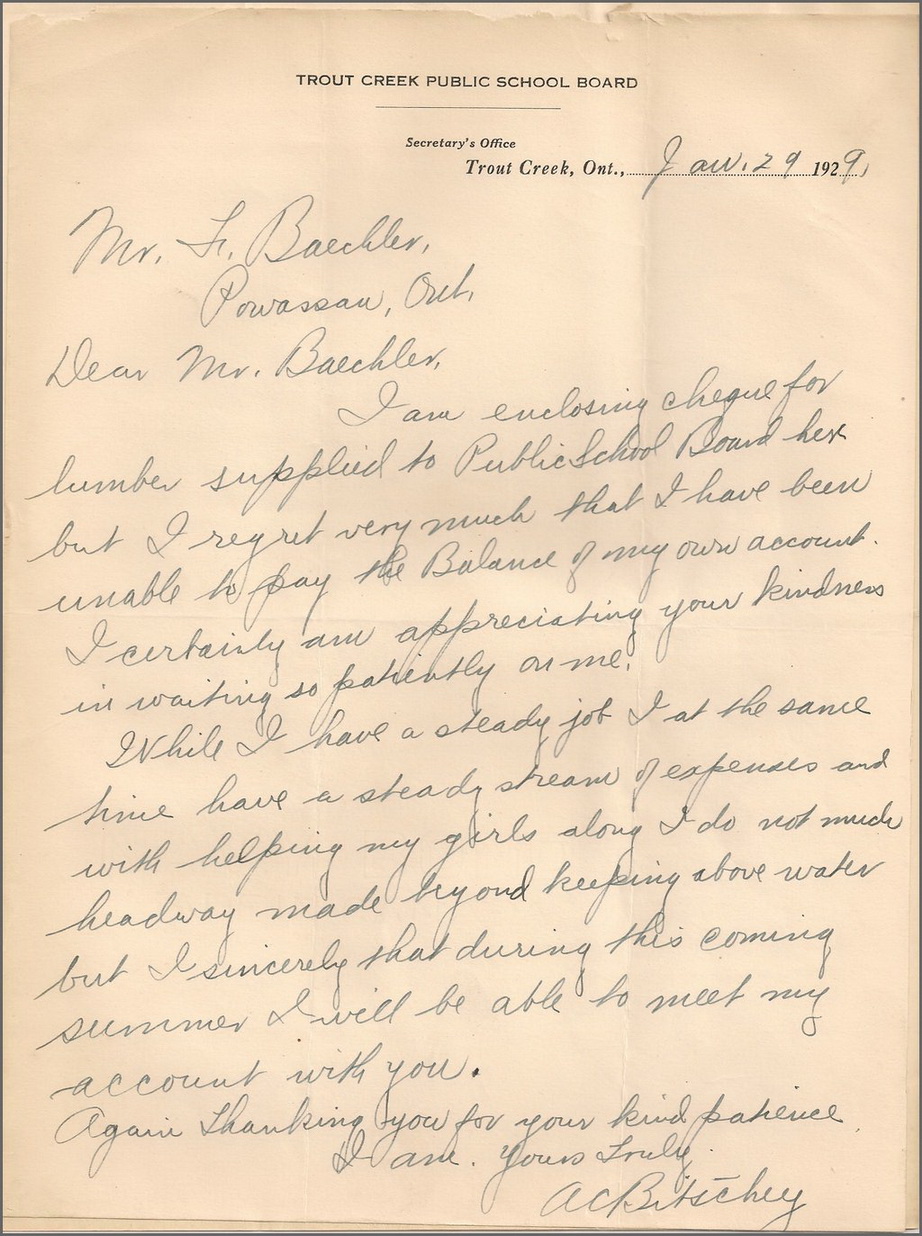 TROUT CREEK PUBLIC SCHOOL BOARD
Secretary's Office
Trout Creek, Ont., Jan. 29 1929,
Mr. F. Baechler,
Powassan, Ont,
Dear Mr. Baechler,
I am enclosing cheque for
lumber supplied to Public School Board her
but I regret very much that I have been
unable to pay the Balance of my own account.
I certainly am appreciating your kindness
in waiting so patiently on me.
While I have a steady job I at the same
time have a steady stream of expenses and
with helping my girls along I do not much
headway made beyond keeping above water
but I sincerely that during this coming
summer I will be able to meet my
account with you.
Again Thanking you for your kind patience
I am. Yours Truly.
AC Bitschey